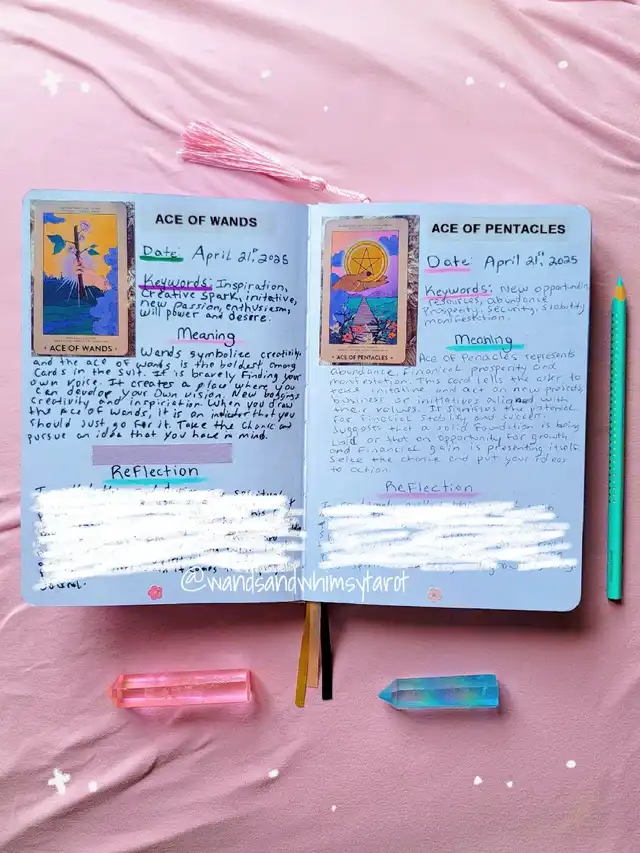 ACE OF WANDS
Date: April 21st, 2025
Keywords: Inspiration,
Creative Spark, initative,
new passion, enthusiasm,
will power and desire.
Meaning
Wands symbolize creativity
and the ace of wands is the boldest among
Cards in the suit. It is bravely finding your
own voice. It creates a place where you
Can develop your own vision. New
creativity and When you draw
the Ace of Wands, it is an indicator that you
Should just go for it. Take the chance and
pursue an idea that you have in mind.
Reflection
Journal.
• ACE OF WANDS •
ACE OF PENTACLES
Date: April 21st, 2025
Keywords: New
resources, abundance
Prosperity, Security, Stability
manifestation.
Meaning
Ace of Pentacles represents
abundance financial prosperity and
manifestation. This card tells the to
initiative and act on new projects,
business or initiatives aligned with
their values. It signifies the potential
for financial and
Suggests that a solid foundation is being
laid or that an opportunity for growth
and financial gain is presenting itself.
Seize the chance and put your ideas
to action.
Reflection
• ACE OF PENTACLES •
@wandsandwhimsytarot